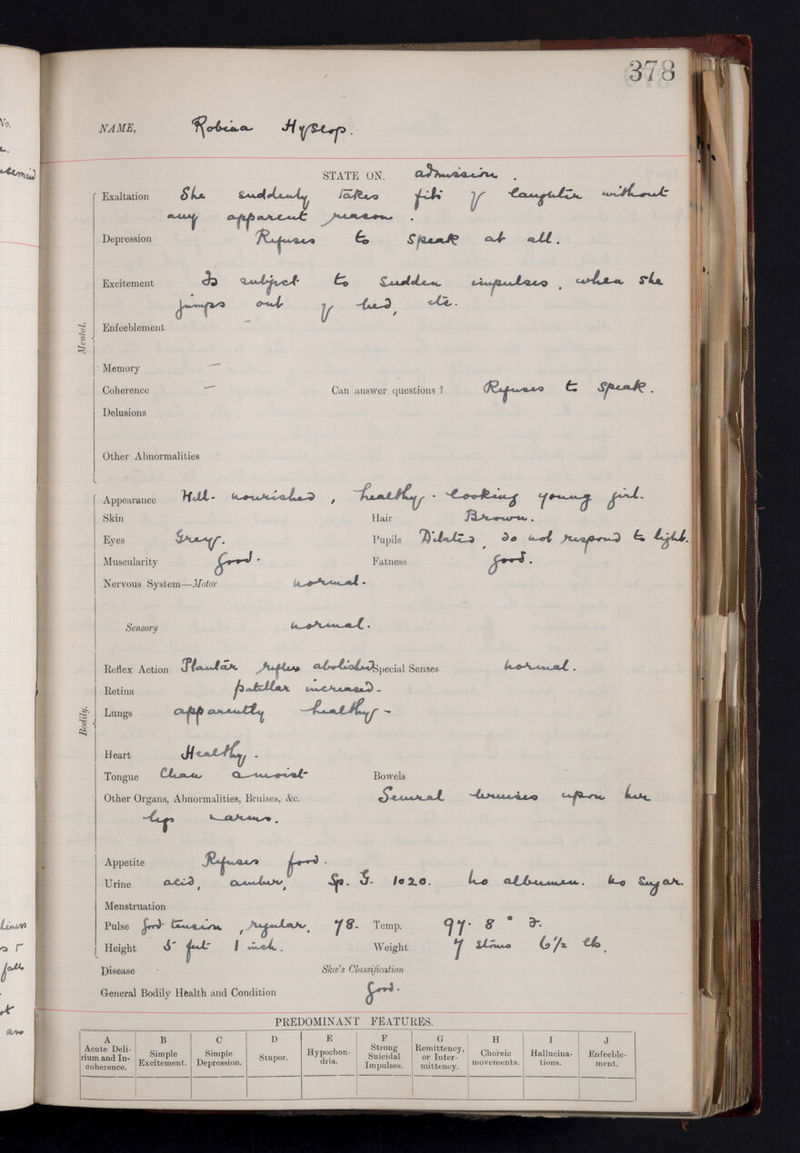 378
NAME, Robina Hyslop.
STATE ON. admission.
Exaltation She suddenly takes fits of laughter without
any apparent reason.
Depression Refuses to speak at all.
Excitement Is subject to sudden impulses, when she
jumps out of bed, etc.
Mental.
Enfeeblement —
Memory —
Coherence — Can answer questions? Refuses to speak.
Delusions
Other Abnormalities
Appearance Well-nourished, healthy-looking young girl.
Skin Hair Brown.
Eyes Grey. Pupils Dilated, do not respond to light.
Muscularity Good. Fatness good.
Nervous System—Motor normal.
Sensory normal.
Reflex Action Plantar reflex abolished Special Senses normal.
Retina patellar increased.
Bodily.
Lungs apparently healthy.
Heart Healthy.
Tongue Clean & moist Bowels
Other Organs, Abnormalities, Bruises, &c. Several bruises upon her
legs & arms.
Appetite Refuses food.
Urine acid, amber, Sp. G. 1020. no albumen. no Sugar.
Menstruation
Pulse good tension, regular, 78. Temp. 97.8° F.
Height 5 feet 1 inch. Weight 7 stones 6½ lb.
Disease Skae's Classification
General Bodily Health and Condition Good.
PREDOMINANT FEATURES.
A B C D E F G H I J
Acute Delirium and Incoherence. Simple Excitement. Simple Depression. Stupor. Hypochondria. Strong Suicidal Impulses. Remittency, or Intermittency. Choreic movements. Hallucinations. Enfeeblement.